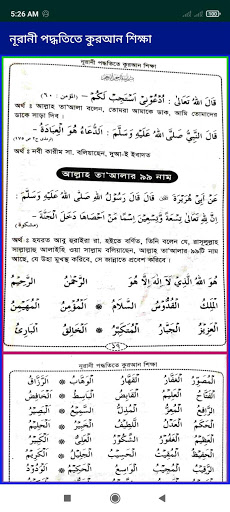 5:26 AM
নূরানী পদ্ধতিতে কুরআন শিক্ষা
নূরানী পদ্ধতিতে কুরআন শিক্ষা
قَالَ اللهُ تَعَالٰى : اُدْعُوْنِىْ اَسْتَجِبْ لَكُمْ – (المؤمن : ٦٠)
অর্থ : আল্লাহ তা'আলা বলেন, তোমরা আমাকে ডাক, আমি তোমাদের
ডাকে সাড়া দিব।
قَالَ النَّبِىُّ صَلَّى اللهُ عَلَيْهِ وَسَلَّمَ : اَلدُّعَاءُ هُوَ الْعِبَادَةُ –
অর্থ : নবী কারীম সা. বলিয়াছেন, দুআ-ই ইবাদত
আল্লাহ তা'আলার ৯৯ নাম
عَنْ اَبِىْ هُرَيْرَةَ قَالَ قَالَ رَسُوْلُ اللهِ صَلَّى اللهُ عَلَيْهِ وَسَلَّمَ :
اِنَّ لِلّٰهِ تَعَالٰى تِسْعَةً وَّتِسْعِيْنَ اِسْمًا مَنْ اَحْصَاهَا دَخَلَ الْجَنَّةَ –
অর্থ : হযরত আবু হুরাইরা রা. হইতে বর্ণিত, তিনি বলেন যে, রাসূলুল্লাহ
সাল্লাল্লাহু আলাইহি ওয়া সাল্লাম বলিয়াছেন, আল্লাহ তা'আলার ৯৯টি নাম
আছে, যে উহা মুখস্থ করিবে, সে জান্নাতে প্রবেশ করিবে।
هُوَ اللهُ الَّذِىْ لَا اِلٰهَ اِلَّا هُوَ الرَّحْمٰنُ الرَّحِيْمُ
اَلْمَلِكُ الْقُدُّوْسُ السَّلَامُ * اَلْمُؤْمِنُ الْمُهَيْمِنُ
الْعَزِيْزُ الْجَبَّارُ الْمُتَكَبِّرُ * اَلْخَالِقُ الْبَارِئُ
১৬
নূরানী পদ্ধতিতে কুরআন শিক্ষা
الْمُصَوِّرُ الْغَفَّارُ الْقَهَّارُ الْوَهَّابُ * الرَّزَّاقُ
الْفَتَّاحُ الْعَلِيْمُ الْقَابِضُ الْبَاسِطُ * الْخَافِضُ
الرَّافِعُ الْمُعِزُّ الْمُذِلُّ السَّمِيْعُ * الْبَصِيْرُ
الْحَكَمُ الْعَدْلُ اللَّطِيْفُ الْخَبِيْرُ * الْحَلِيْمُ
الْعَظِيْمُ الْغَفُوْرُ الشَّكُوْرُ الْعَلِىُّ * الْكَبِيْرُ
الْحَفِيْظُ الْمُقِيْتُ الْحَسِيْبُ الْجَلِيْلُ * الْكَرِيْمُ
الرَّقِيْبُ الْمُجِيْبُ الْوَاسِعُ الْحَكِيْمُ * الْوَدُوْدُ